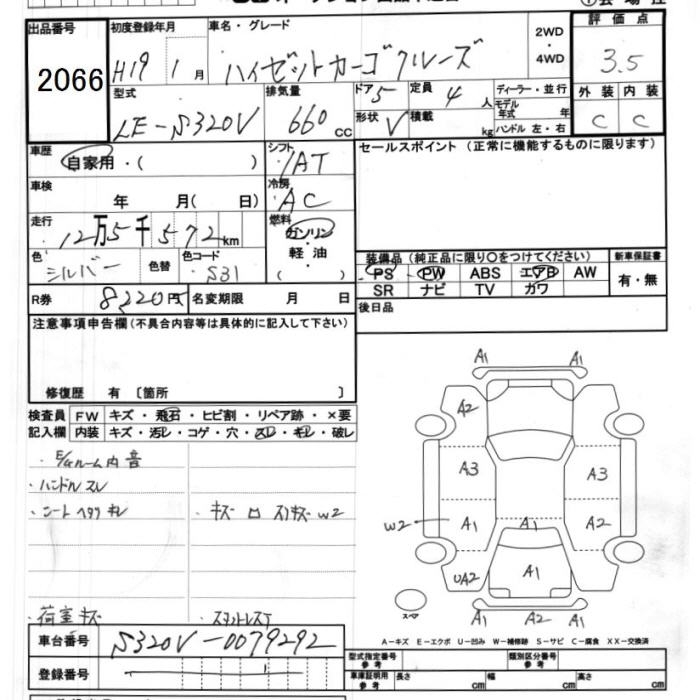 出品番号 初度登録年月 車名・グレード 2WD・4WD 評価点
2066 H19 1月 ハイゼットカーゴクルーズ 3.5
外装 内装
C C
型式 排気量 ドア 5 定員 4人 ディーラー・並行
LE-S320V 660cc 形状 V 積載 kg モデル年式 年
ハンドル 左・右
車歴 シフト セールスポイント(正常に機能するものに限ります)
自家用・( ) IAT
車検 年 月( 日) 冷房 AC
走行 12万5千572km 燃料 ガソリン・軽油
色 シルバー 色替 色コード S31
装備品(純正品に限り〇をつけてください) 新車保証書
PS PW ABS エアB AW 有・無
SR ナビ TV カワ
R券 8220円 名変期限 月 日 後日品
注意事項申告欄(不具合内容等は具体的に記入して下さい)
修復歴 有 〔箇所 〕
検査員 FW キズ・飛石・ヒビ割・リペア跡・×要
記入欄 内装 キズ・汚レ・コゲ・穴・スレ・キレ・破レ
・E/Gルーム内音
・ハンドルスレ
・シートヘタリキレ ・キズ
W2
荷室キズ
A1 A1
A2
A3 A3
W2 A1 A1 A2
UA2 A1
スペア A1 A2 A1
A-キズ E-エクボ U-凹み W-補修跡 S-サビ C-腐食 XX-交換済
車台番号 S320V-0079292
登録番号
型式指定番号 参考 類別区分番号 参考
車庫証明用 参考 長さ cm 幅 cm 高さ cm